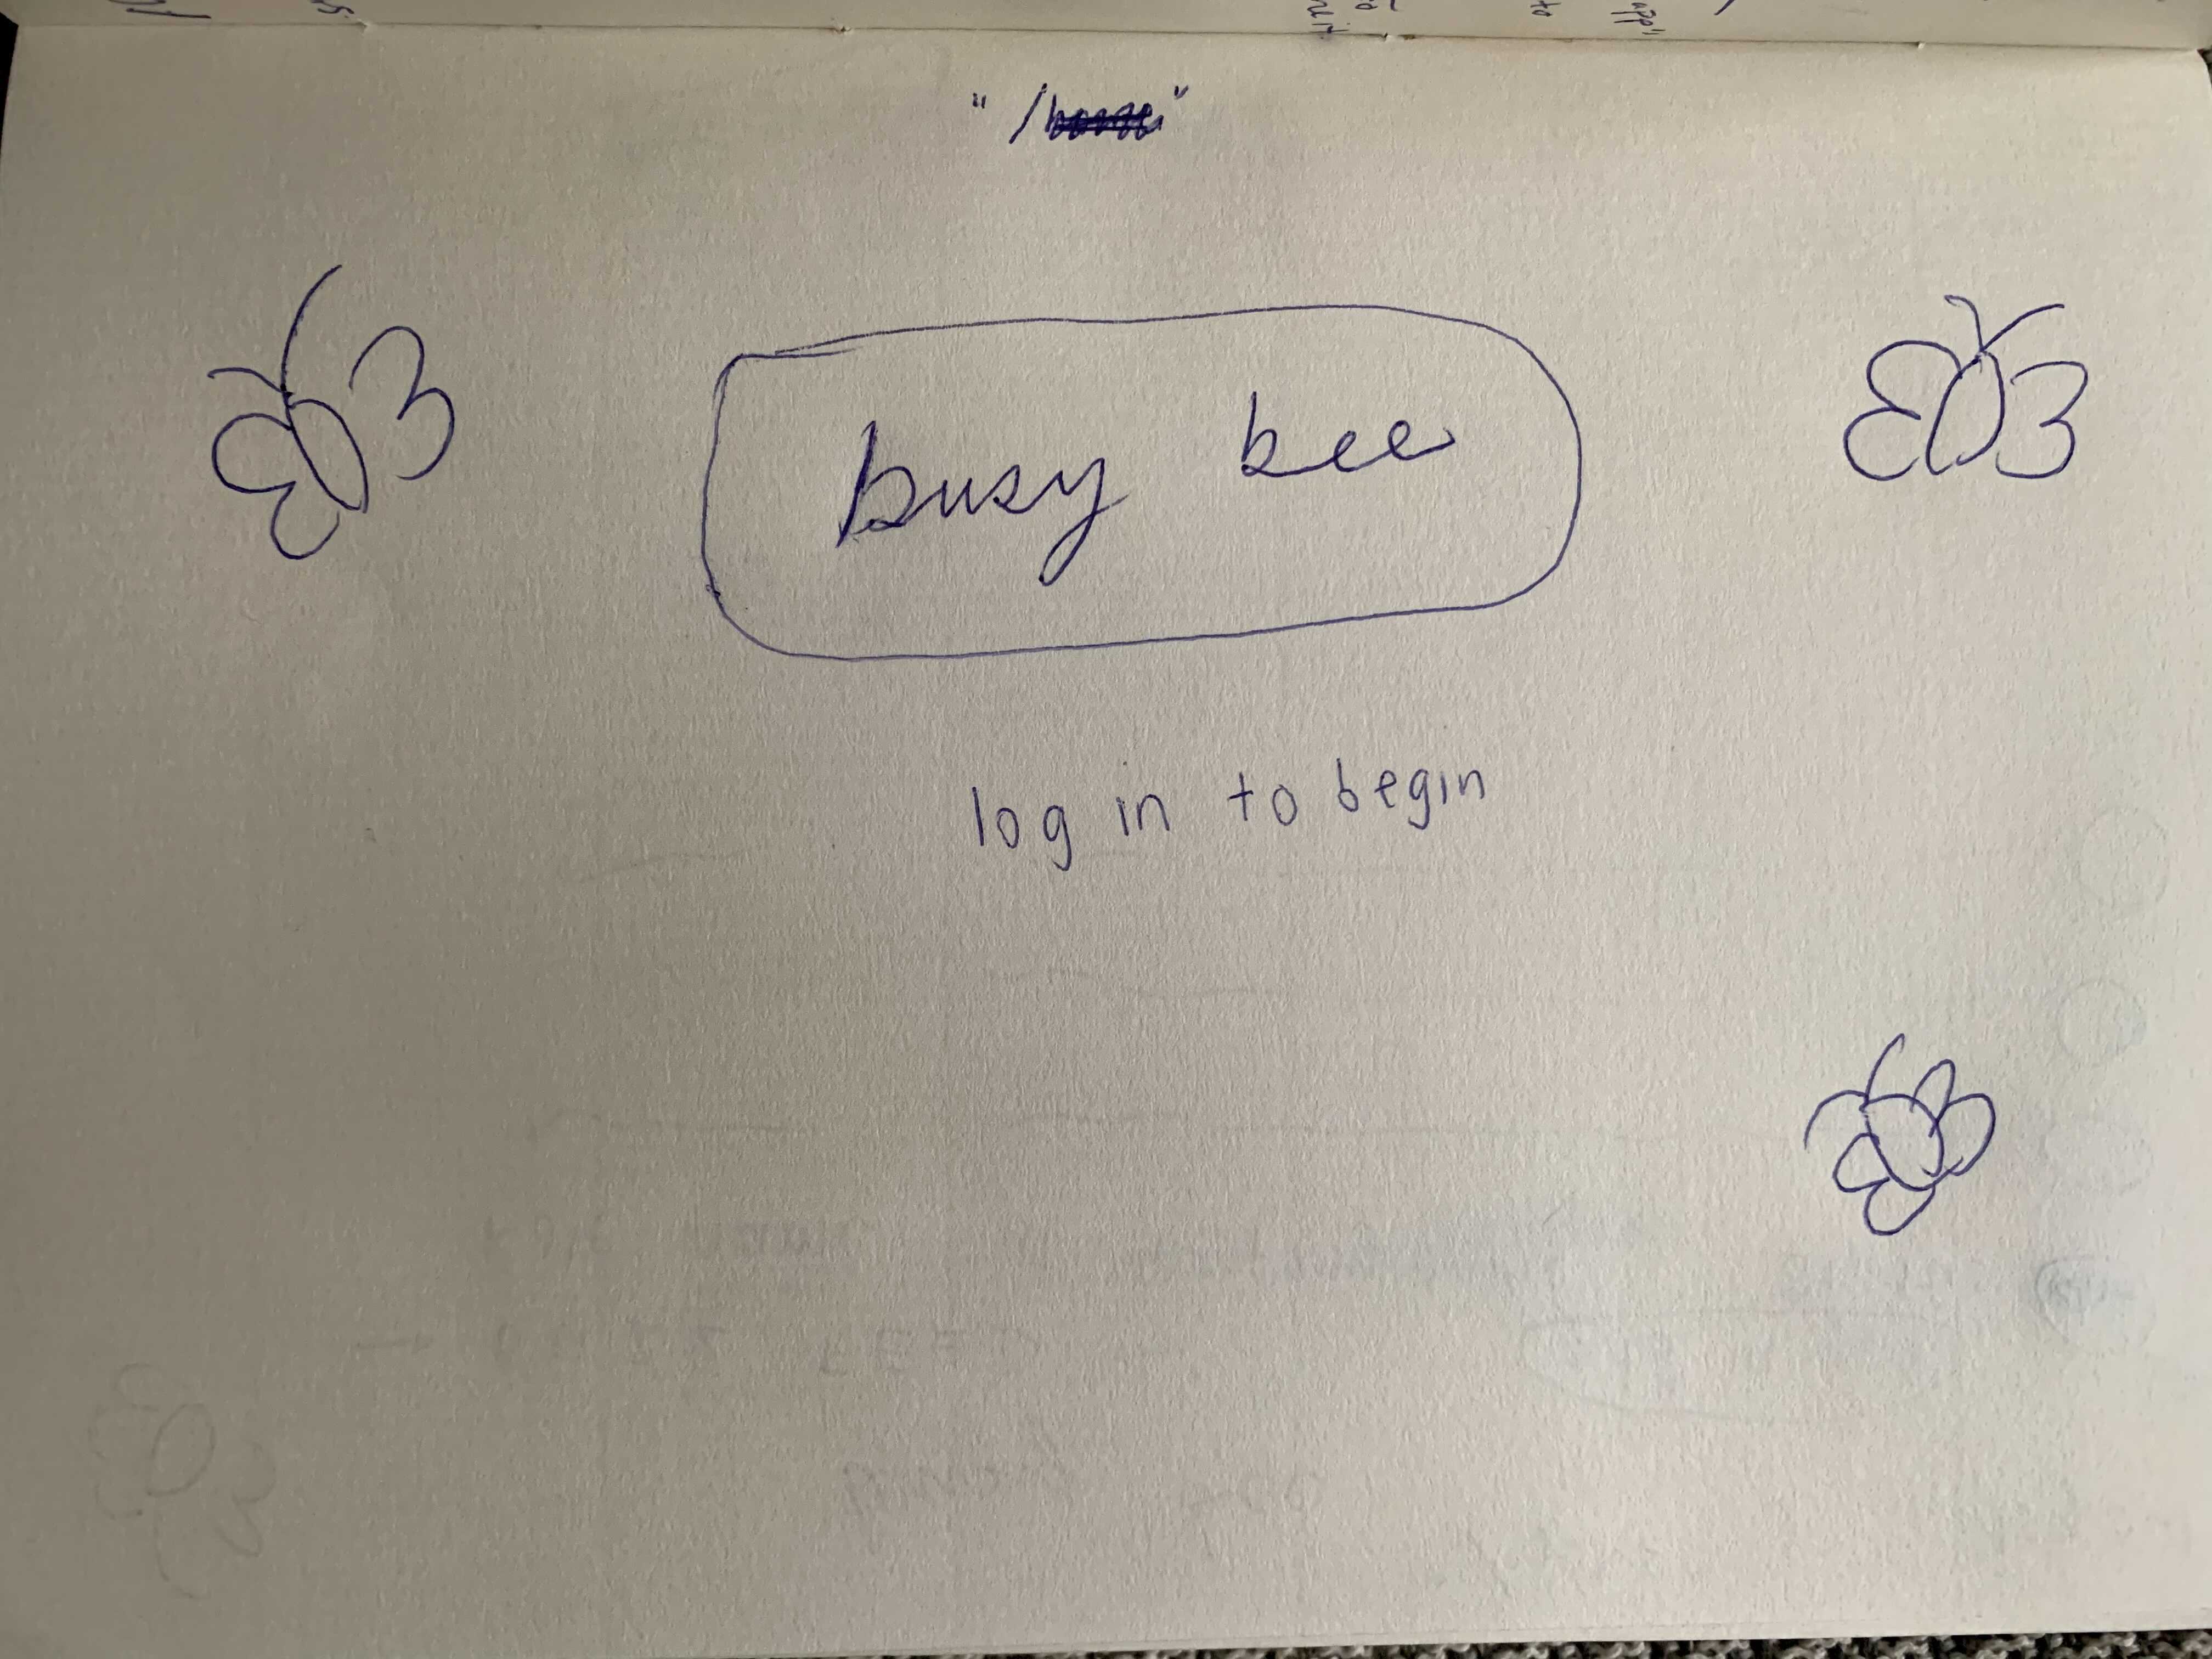 "/"
busy bee
log in to begin